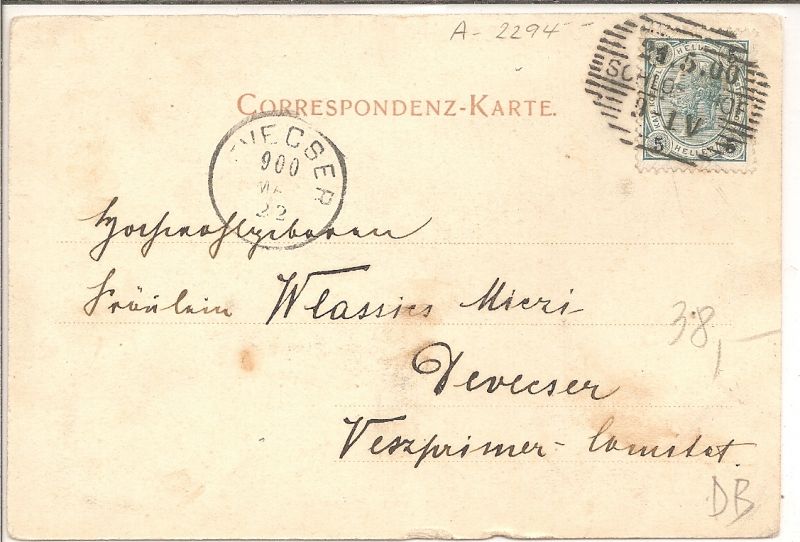 A-2294-
CORRESPONDENZ-KARTE.
5 HELLER 5
21 5.00
IV
EVECSER
900
MA
22
Hochwohlgeboren
Fräulein Wlassics Miczi
Devecser
Veszprimer-Comitat.
38,-
DB